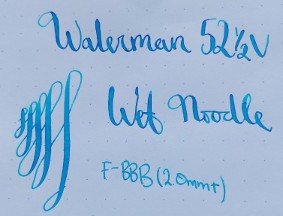 Waterman 52½V
Wet Noodle
F-BBB (2.0mm+)